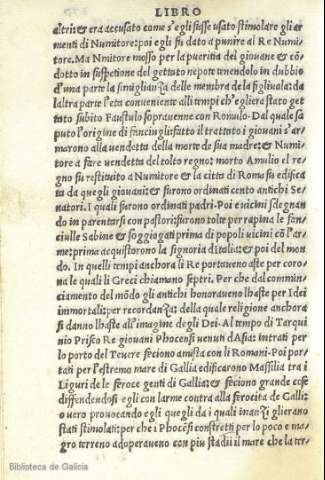 LIBRO
altri:& era accusato come s'egli fusse usato stimolare gli ar
menti di Numitore: poi egli fu dato a punire al Re Numi
tore. Ma Nmitore mosso per la pueritia del giouane & cō
dotto in suspetione del gettato nepote tenendolo in dubbio
d'una parte la simiglianza delle membra de la figliuola: da
laltra parte l'eta conueniente alli tempi ch'egli era stato get
tato subito Faustulo soprauenne con Romulo. Dal quale sa
puto l'origine di fanciugli fatto il trattato i giouani s'ar
marono alla uendetta della morte de sua madre: & Numi
tore a fare uendetta del tolto regno: morto Amulio el re
gno fu restituito a Numitore & la citta di Roma fu edifica
ta da quegli giouani: & furono ordinati cento antichi Se
natori. I quali furono ordinati padri. Poi e uicini sdegnan
do in parentarsi con pastori: furono tolte per rapina le fan
ciulle Sabine & soggiogati prima de popoli uicini cō l'ar
me: prima acquistorono la signoria d'Italia: & poi del mon
do. In quelli tempi anchora li Re portaueno aste per coro
na le quali li Greci chiamano septri. Per che dal commin
ciamento del mōdo gli antichi honoraueno lhaste per Idei
immortali: per recordanza: della quale religione anchora
si danno lhaste all'imagine degli Dei. Al tempo di Tarqui
nio Prisco Re giouani Phocensi uenuti d'Asia: intrati per
lo porto del Teuere feciono amista con li Romani. Poi por
tati per l'estremo mare di Gallia edificarono Massilia tra i
Liguri de le feroce genti di Gallia: & feciono grande cose
diffendendosi egli con larme contra alla ferocita de Galli:
o uero prouocando egli quegli da i quali inanzi gli erano
stati stimolati: per che i Phocēsi constretti per lo poco e ma
gro terreno adoperaueno con piu stadii il mare che la ter-
Biblioteca de Galicia